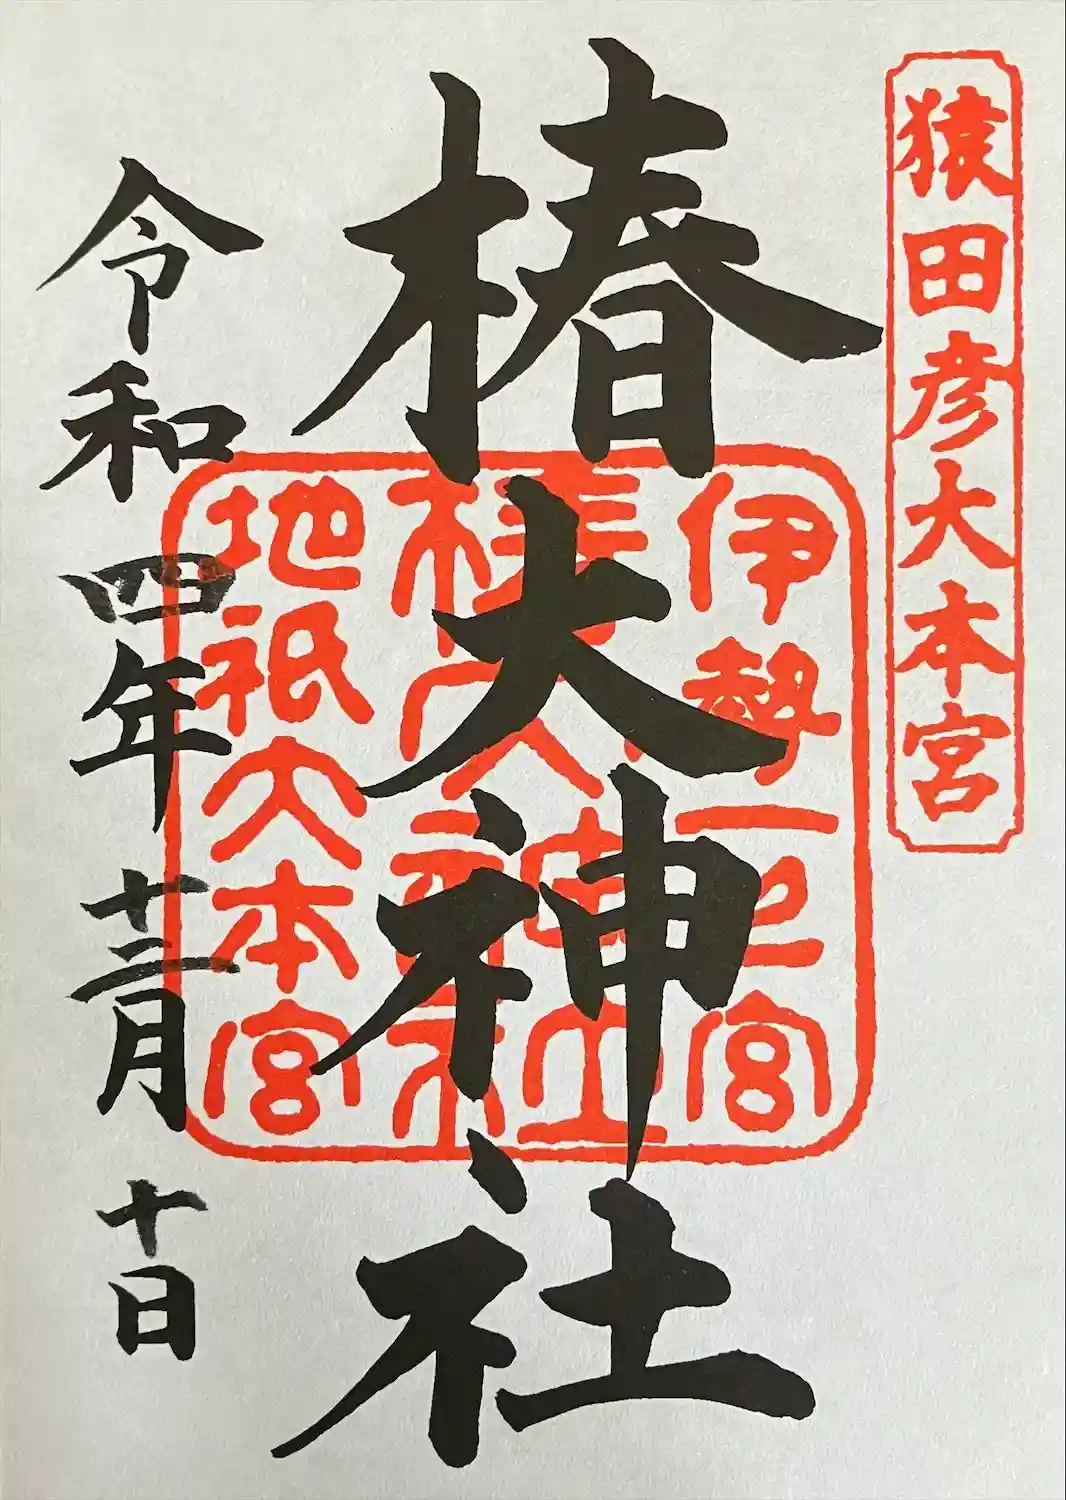 猿田彦大本宮
椿大神社
伊勢一之宮
椿大神社
地祇大本宮
令和四年十二月十日